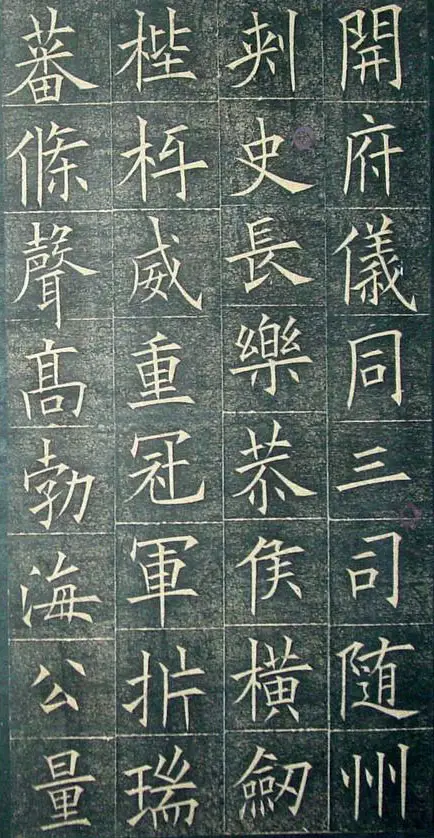 開府儀同三司随州
刾史長樂恭侯橫劒
梐枑威重冠軍析瑞
蕃條聲髙勃海公量